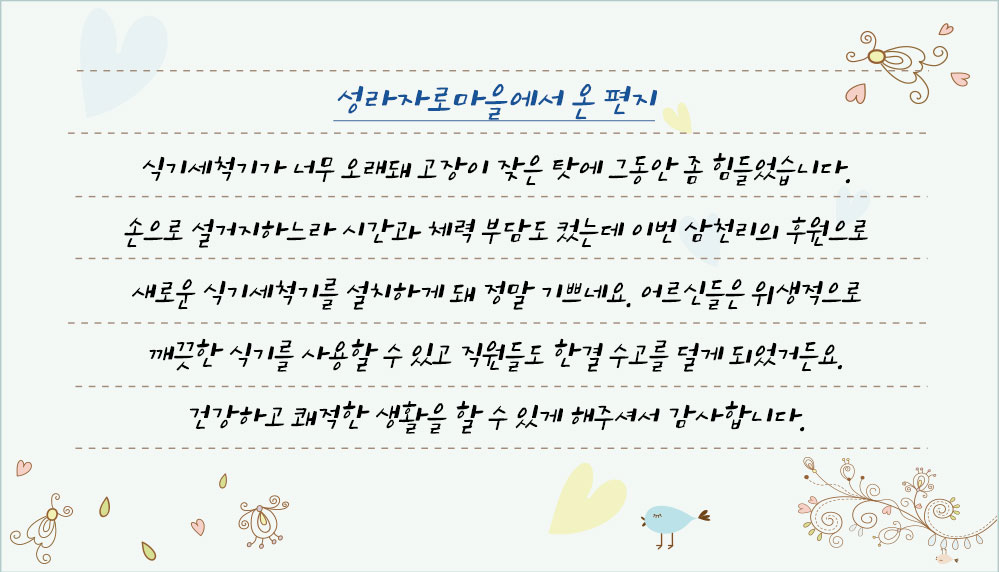 성라자로마을에서 온 편지
식기세척기가 너무 오래돼 고장이 잦은 탓에 그동안 좀 힘들었습니다.
손으로 설거지하느라 시간과 체력 부담도 컸는데 이번 삼천리의 후원으로
새로운 식기세척기를 설치하게 돼 정말 기쁘네요. 어르신들은 위생적으로
깨끗한 식기를 사용할 수 있고 직원들도 한결 수고를 덜게 되었거든요.
건강하고 쾌적한 생활을 할 수 있게 해주셔서 감사합니다.